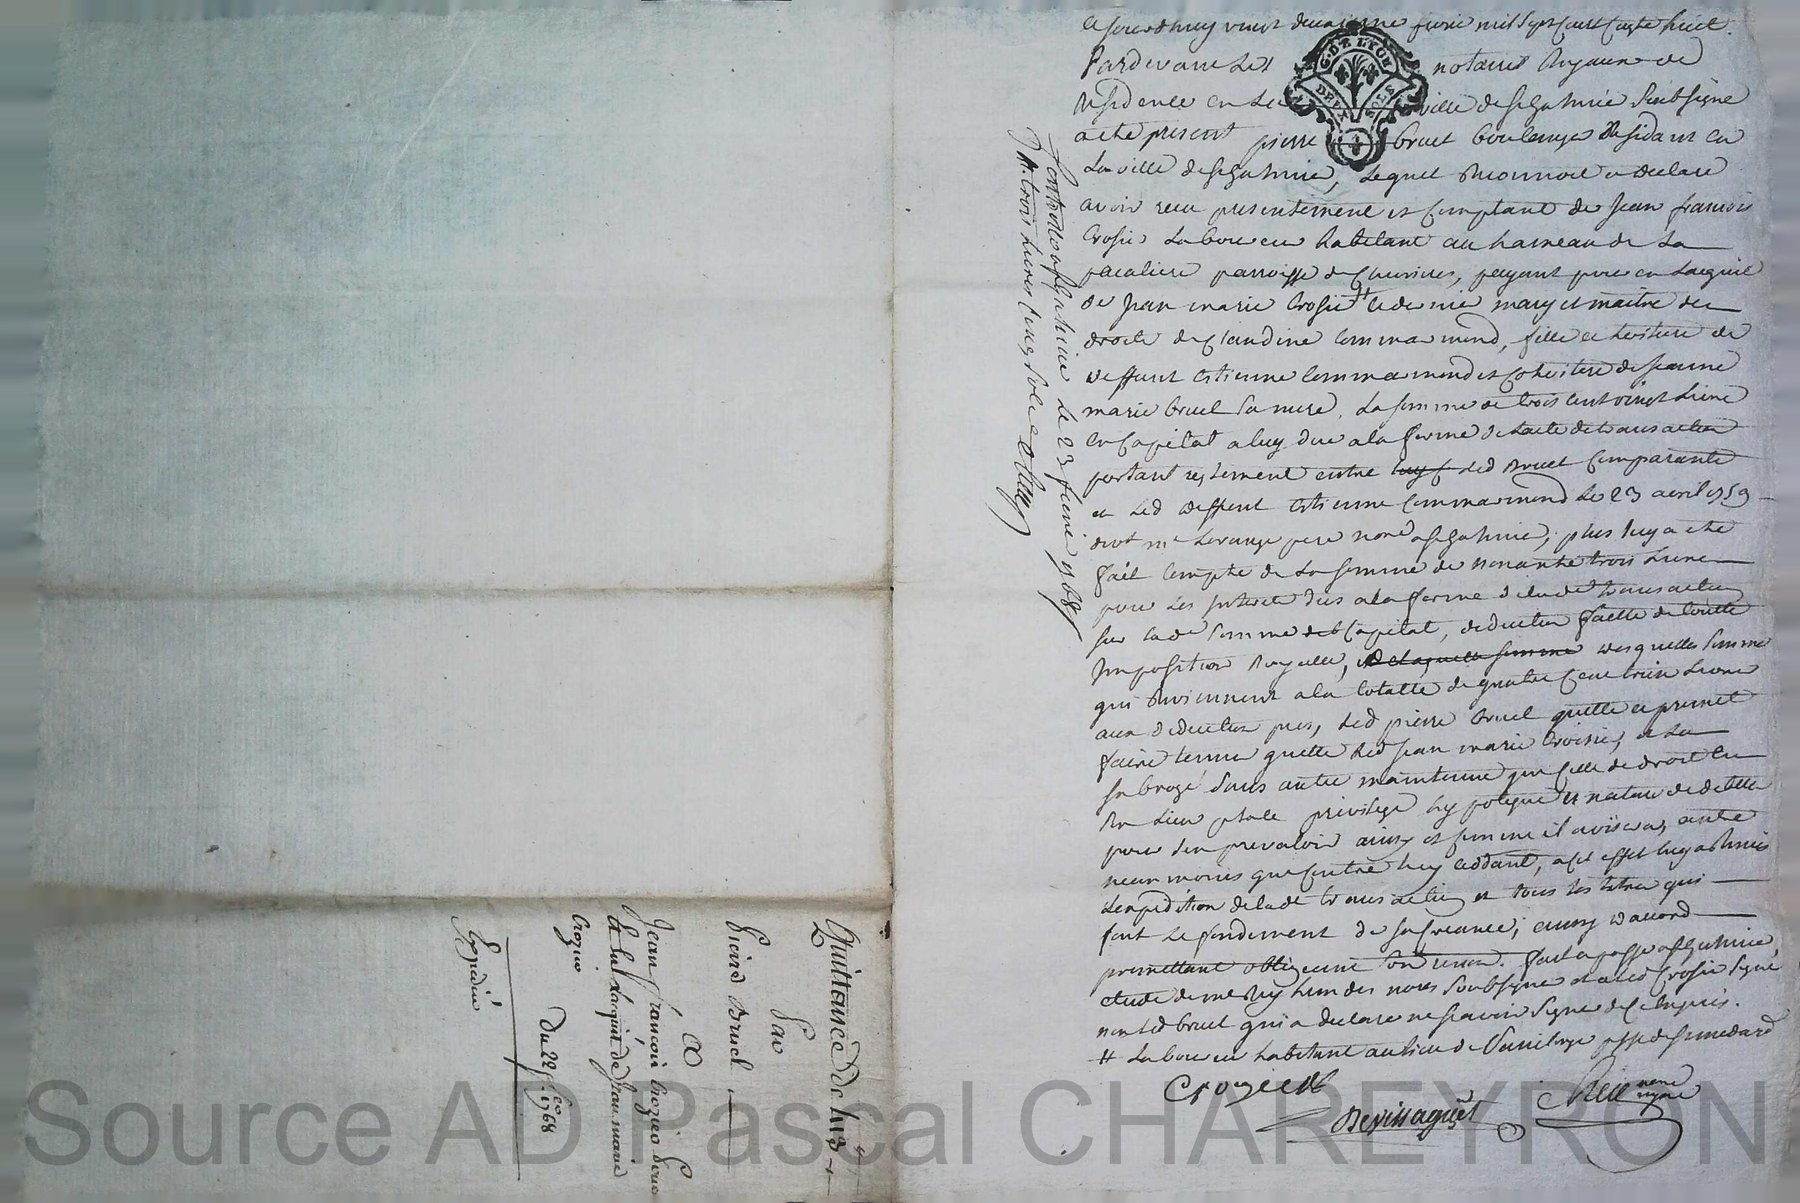 ce jourdhuy vingt deuxieme fevrie mil sept cent soixte huict.
Pardevant Les notaires Royaux de
Residence en La ville de st Galmier soubsigne
a ete present pierre bruel boulanger Residant en
La ville de st Galmier, Lequel Reconnoit a declare
avoir recu presentement et comptant de jean francois
Crosie Laboureu habitant au hameau de La
parroisse de Chevrieres, payant pour en Lacquit
de Jean marie Crosie # Le de mie mary et maitre des
droits de Claudine Commarmond, fille et heritiere de
deffunt Estienne Commarmond et coheritiere de jeanne
marie bruel sa mere, La somme de trois cent vingt Livre
en Capital a luy due a la forme de Lacte de transaction
portant reglement entre Led Bruel Comparant
et Led deffunt Estienne Commarmond Le 23 avril 1759
dvt me pere nore a st Galmier; plus luy a ete
fait compte de La somme de nonante trois Livre
pour Les interets dus a la forme de lade transaction
sur lade somme de Capital, deduction faitte de toutte
Imposition Royalle, de laquelle somme desquelles somme
qui Reviennent a la totalle de quatre cent treize Livre
aux deduction pres, Led pierre bruel quitte et promet
faire tenir quitte Led jean marie Crosie, et La
subrogé sans autre maintenue que Celle de droit en
Son Lieu place privilege hypoteque et nature de dette
pour s'en prevaloir ainsy et comme il avisera, autre
neanmoins que contre luy ceddant, a cet effet luy a Remis
Lexpedition de lade transaction et tous les titres qui
font Le fondement de sa creance; ainsy daccord
promettant obligeant Fait et passe a st Galmier,
etude de me Rey Lun des nores soubsigne et a Led Crosie signé
non Led bruel qui a declare ne scavoir signe de ce enquis.
# Laboureu habitant au lieu de psse de st medard
Crozier
Devissaguet
Rey nore royal
G. DE LYON
DEUX SOLS
Controllé a st Galmier Le 23 fevrie 1768
R. trois Livres cinq sols
Quittance de
Par
Pierre Bruel
A
Jean francois Crozier pour
a la Lacquit de Jean marie
Crozier
Du 22 f. 1768
Expedié
Source AD Pascal CHAREYRON